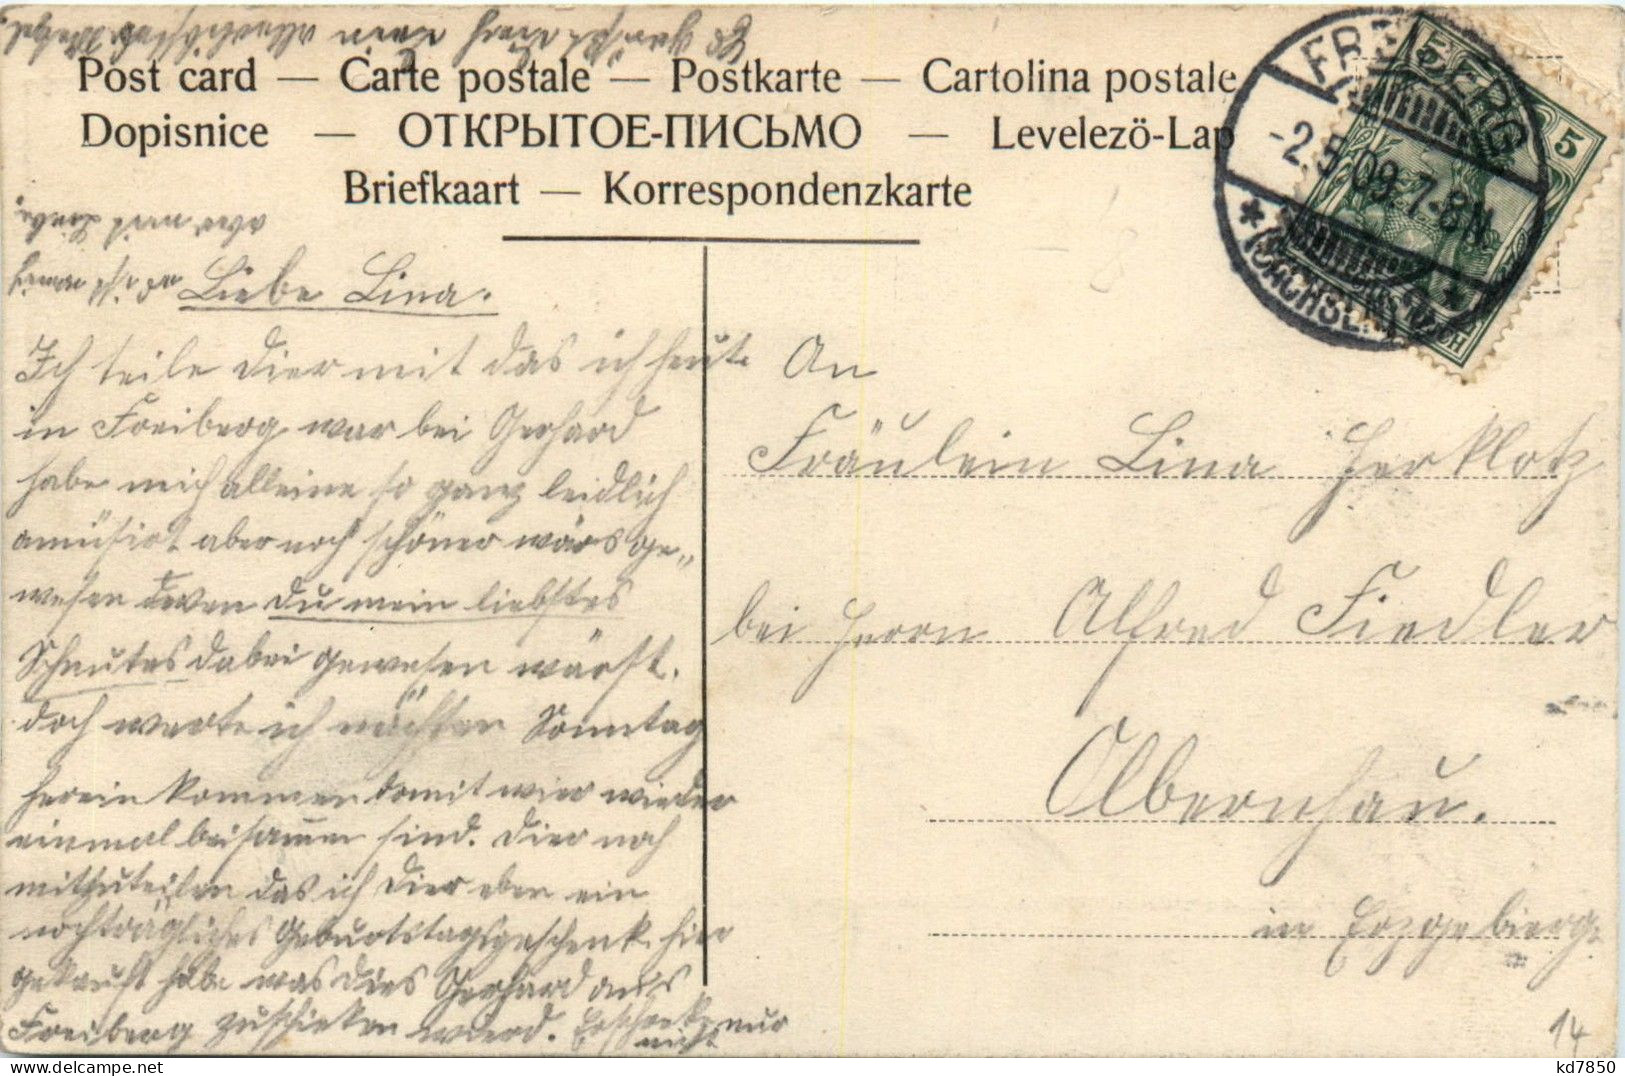 Post card — Carte postale — Postkarte — Cartolina postale
Dopisnice — ОТКРЫТОЕ-ПИСЬМО — Levelezö-Lap
Briefkaart — Korrespondenzkarte
FREIBERG
-2.5.09.7-8N.
* (SACHSEN) *
5
Liebe Lina.
Ich teile Dier mit das ich heute
in Freiberg war bei Gerhard
habe mich alleine so ganz leidlich
amüsirt aber noch schöner wärs ge„
wesen wen Du mein liebstes
Schnutes dabei gewesen wärst.
doch werte ich nächsten Sonntag
herein kommen damit wier wieder
einmal beisamm sind. Dier noch
mitzuteilen das ich Dier eben ein
nochträgliches Geburtstagsgeschenk hier
gekauft habe was dies Gerhard aus
Freiberg zuschicken wierd. Erschreke nur
nicht
aber mit Liebe.
An
Fräulein Lina Herklotz
bei Herrn Alfred Fiedler
Olbernhau.
in Erzgebierge
14
kd7850